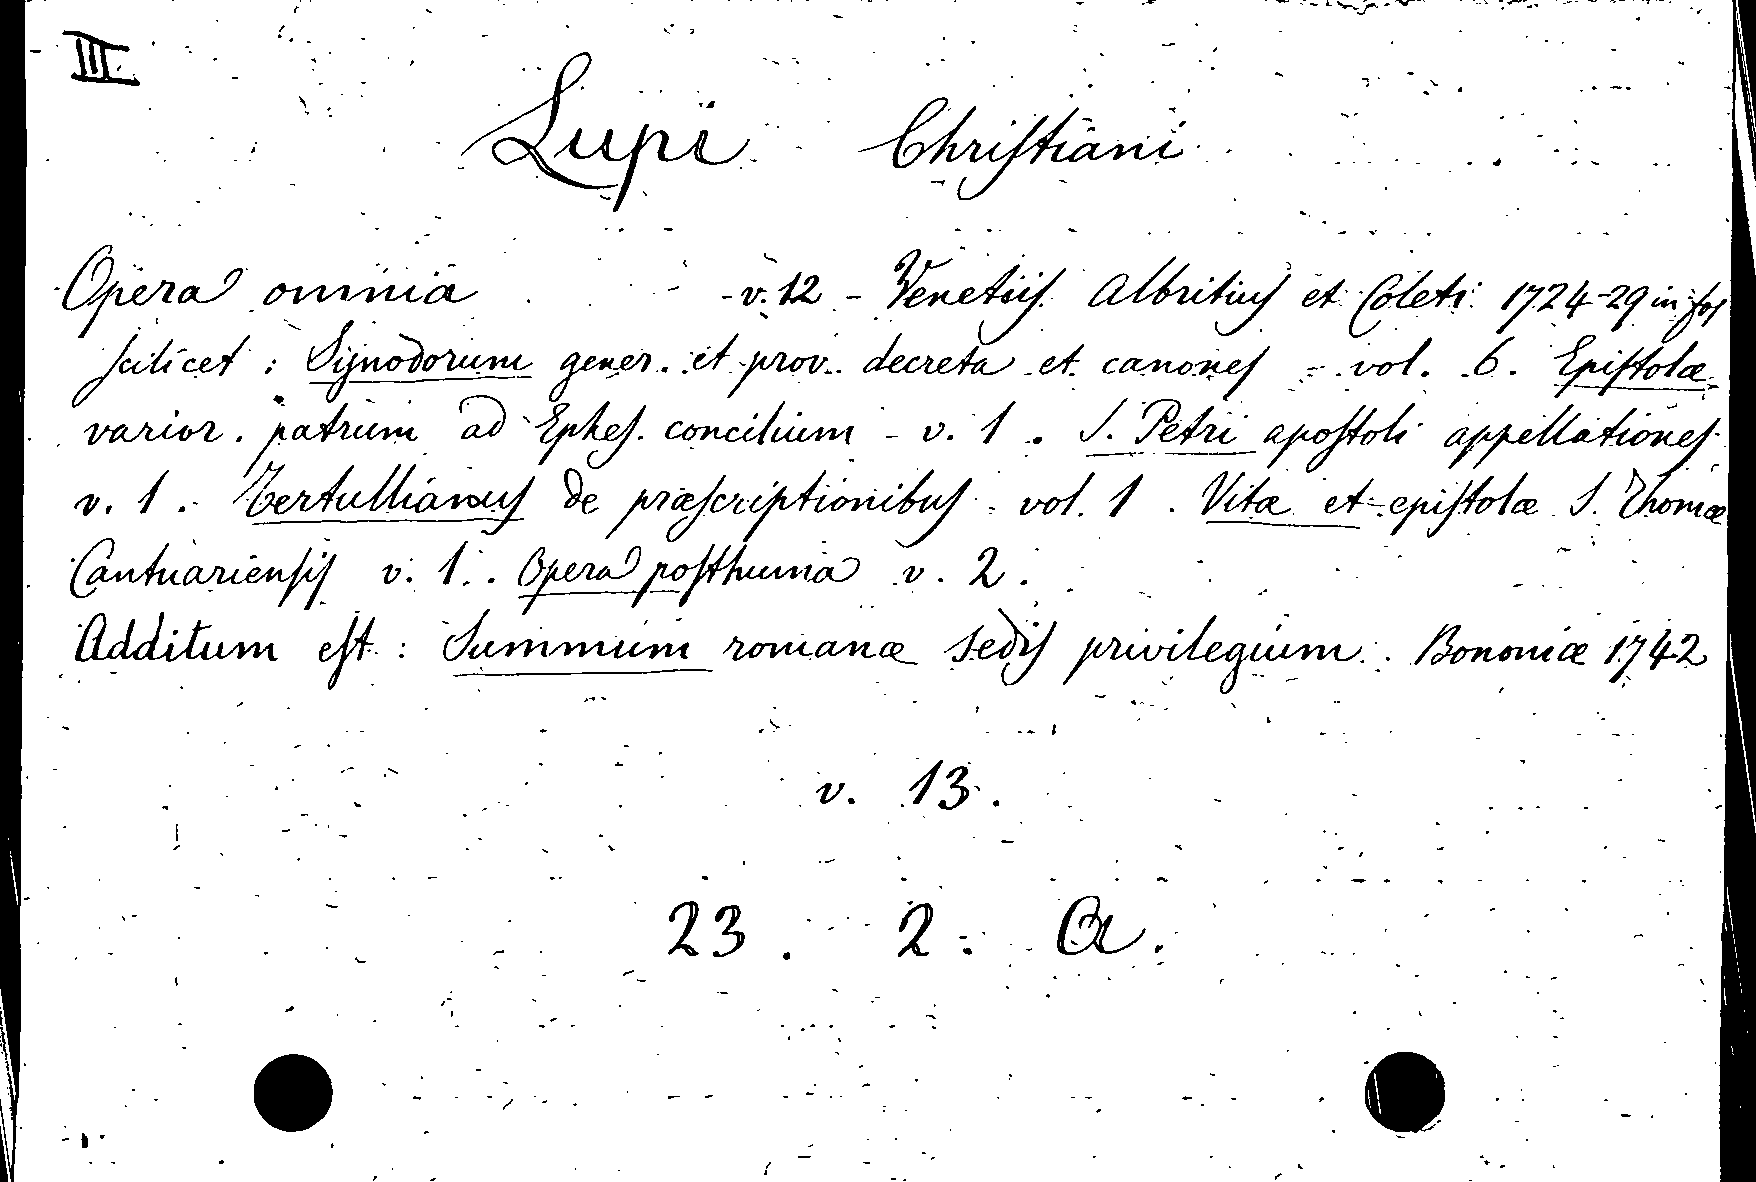 III
Lupi Christiani
Opera omnia - v. 12 - Venetiis. Albritius et Coleti 1724-29 in fol
scilicet : Synodorum gener. et prov. decreta et canones - vol. 6. Epistolæ
varior. patrum ad Ephes. concilium - v. 1. S. Petri apostoli appellationes
v. 1. Tertullianus de præscriptionibus. vol. 1. Vitæ et epistolæ S. Thomæ
Cantuariensis v. 1. Opera posthuma v. 2.
Additum est : Summum romanæ sedis privilegium. Bononiæ 1742
v. 13.
23. 2. A.